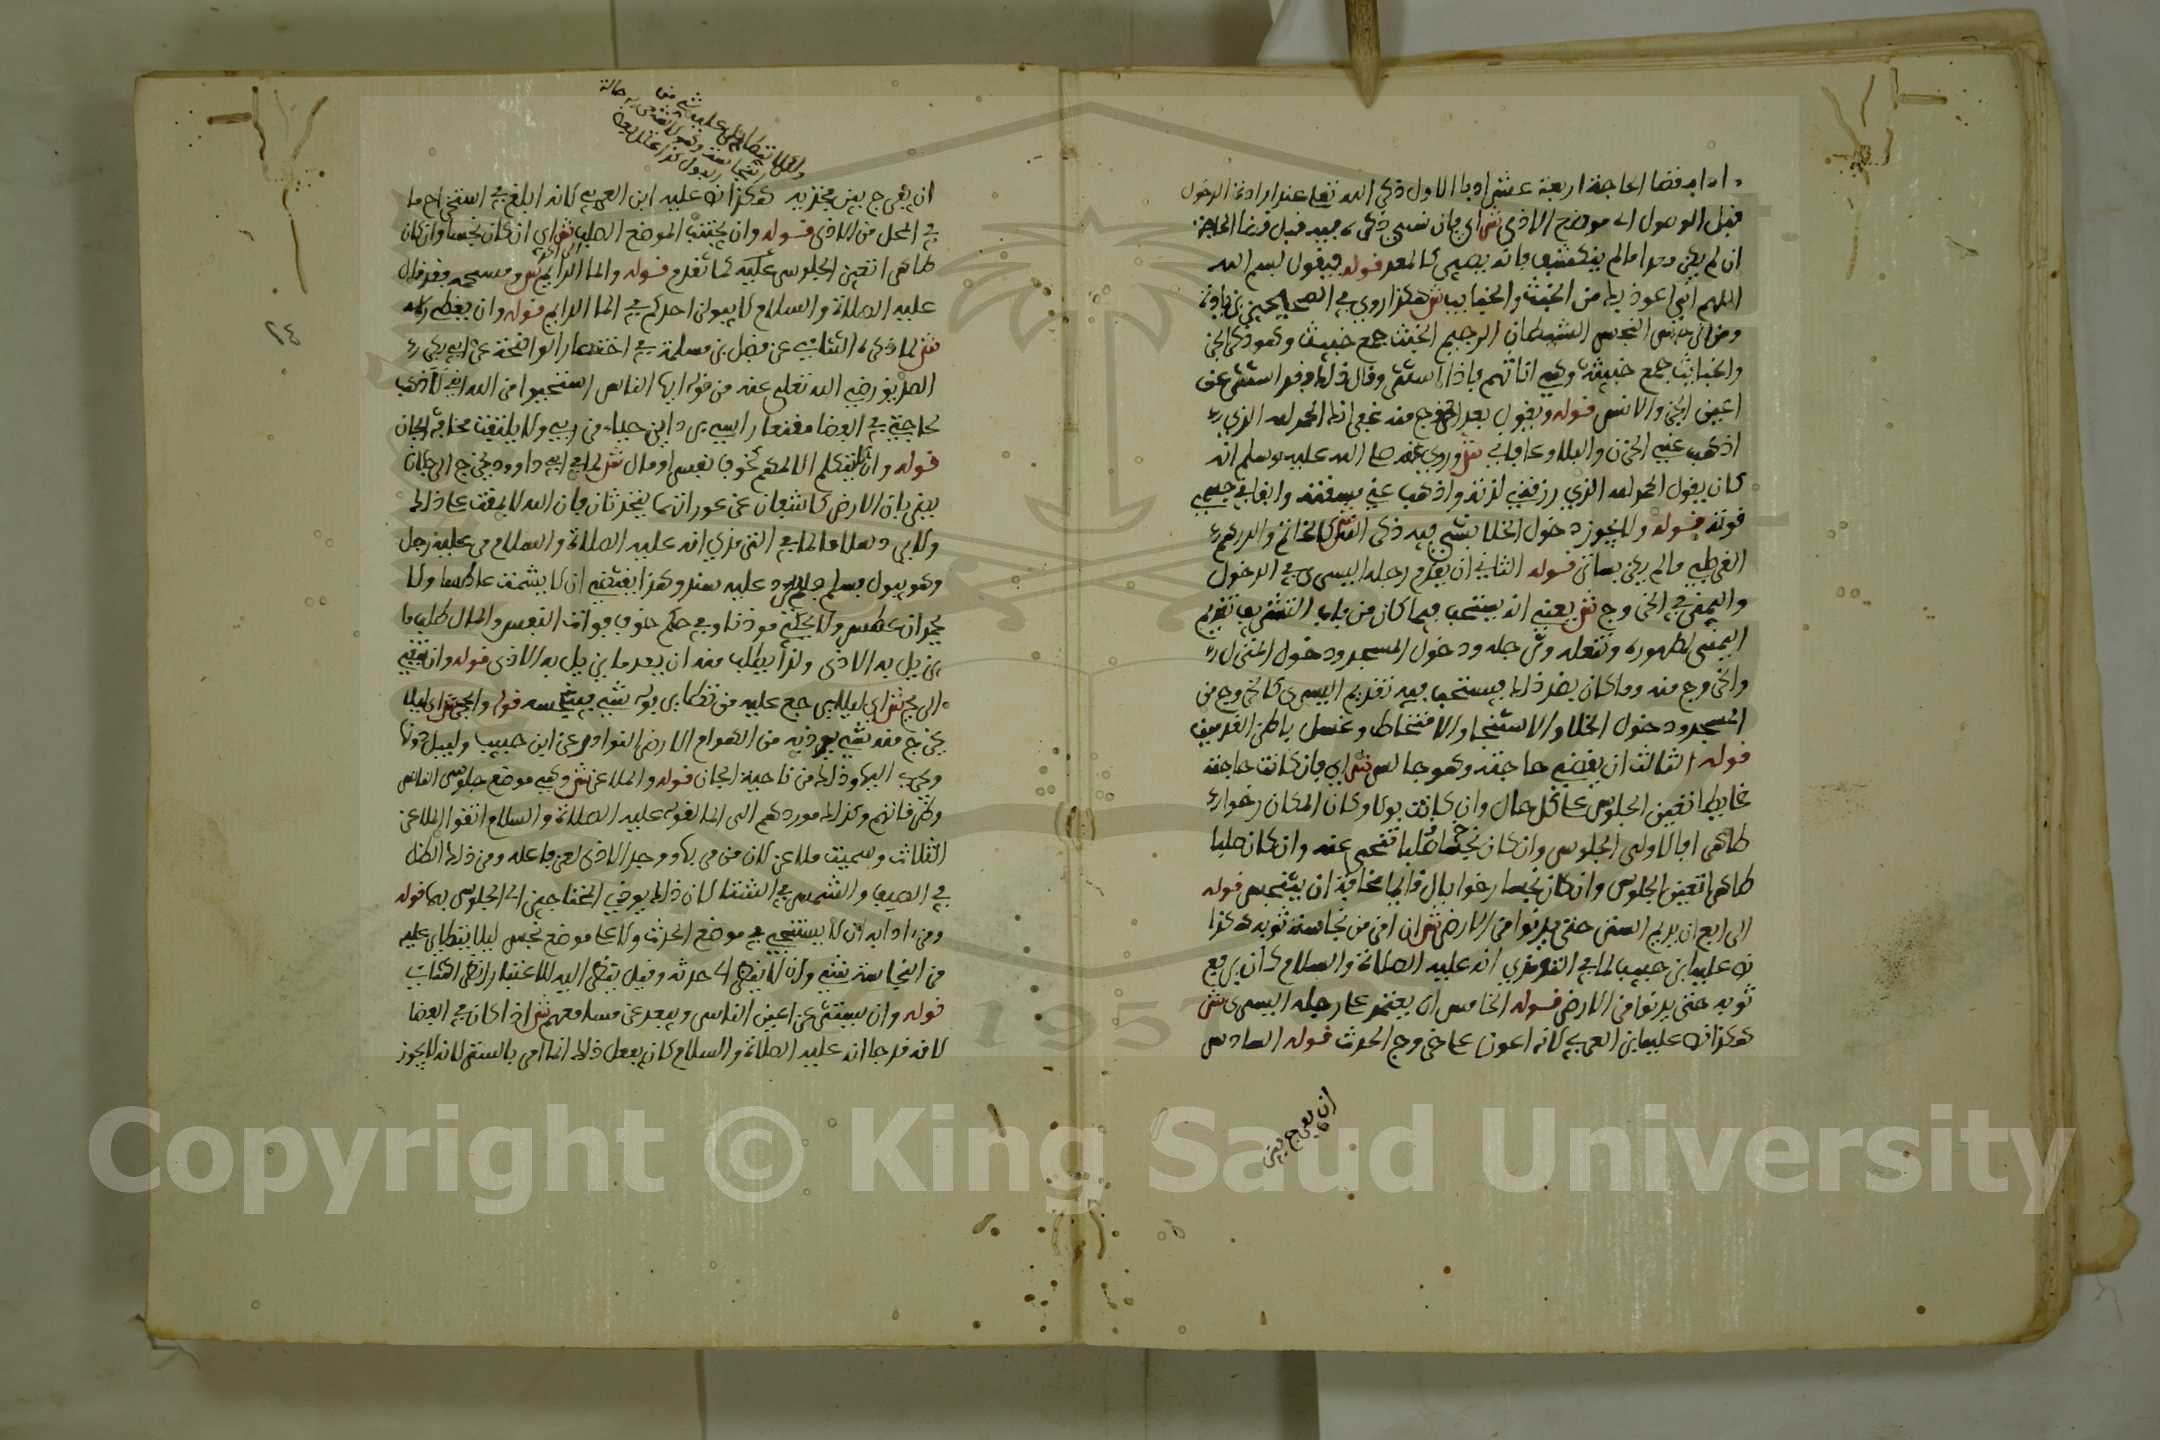 ءاداب قضا الحاجة اربعة عشر ادبا الاول ذكر الله تعلى عند ارادة الدخول
قبل الوصول الى موضع الاذى ش اي فان نسي ذكره فيه قبل قضا الحاجة
ان لم يكن معدا ما لم ينكشف فانه يصير كالمعد قوله فيقول بسم الله
اللهم اني اعوذ بك من الخبث والخبايث ش هكذا روي في الصحيحين بزيادة
ومن الرجس النجس الشيطان الرجيم الخبث جمع خبيث وهو ذكر الجن
والخبايث جمع خبيثة وهي اناثهم فاذا استتر وقال ذلك فقد استتر عن
اعين الجن والانس قوله ويقول بعد الخروج منه غفرانك الحمد لله الذي
اذهب عني الحزن والبلا وعافاني ش وروي عنه صلى الله عليه وسلم انه
كان يقول الحمد لله الذي رزقني لذته واذهب عني مشقته وابقا في جسمي
قوته قوله ولا يجوز دخول الخلا بشي فيه ذكر الله ش كالخاتم والدرهم
القرطبي ما لم يكن بساتر قوله الثاني ان يقدم رجله اليسرى في الدخول
واليمنى في الخروج ش يعني انه يستحب فيما كان من باب التشريف تقديم
اليمنى لطهوره وتنعله وترجله ودخول المسجد ودخول المنزل
والخروج منه وما كان بضد ذلك فيستحب فيه تقديم اليسرى كالخروج من
المسجد ودخول الخلا والاستنجا والامتخاط وغسل باطن القدمين
قوله الثالث ان يقضي حاجته وهو جالس ش اي فان كانت حاجته
غايطا تعين الجلوس على كل حال وان كانت بولا وكان المكان رخوا
طاهرا فالاولى الجلوس وان كان نجسا صلبا تنحى عنه وان كان صلبا
طاهرا تعين الجلوس وان كان نجسا رخوا بال قايما مخافة ان يتنجس قوله
الرابع ان يديم الستر حتى يدنو من الارض ش ان امن من نجاسة ثوبه هكذا
نص عليه ابن حبيب لما في الترمذي انه عليه الصلاة والسلام كان يرفع
ثوبه حتى يدنو من الارض قوله الخامس ان يعتمد على رجله اليسرى ش
هكذا نص عليه ابن العربي لانه اعون على خروج الحدث قوله السادس
ان يفرج بين
ان يفرج بين فخذيه هكذا نص عليه ابن العربي لانه ابلغ في استخراج ما
في المحل من الاذى قوله وان يجتنب الموضع الصلب ش اي ان كان نجسا وان كان
طاهرا تعين الجلوس عليه كما تقدم قوله والما الراكد ش ومسحمه فقد قال
عليه الصلاة والسلام لا يبولن احدكم في الما الدايم قوله وان يغطي راسه
ش لما ذكره الثعالبي عن فضل بن مسلمة في اختصار الواضحة عن ابي بكر
الصديق رضي الله تعلى عنه من قوله ايها الناس استحيوا من الله اني لاذهب
لحاجتي في الفضا مقنعا راسي بردايي حياء من ربي ولا يلتفت مخافة الجان
قوله وان لا يتكلم الا لمهم كخوف نفس او مال ش لما في ابي داوود لا يخرج الرجلان
يضربان الارض كاشفان عن عوراتهما يتحدثان فان الله لا يمقت على ذلك
ولا يرد سلاما لما في الترمذي انه عليه الصلاة والسلام مر عليه رجل
وهو يبول فسلم فلم يرد عليه سند وهذا يقتضي ان لا يشمت عاطسا ولا
يحمد ان عطس ولا يحكي مؤذنا وفي حكم خوف فوات النفس والمال طلب ما
يزيل به الاذى ولذا يطلب منه ان يعد ما يزيل به الاذى قوله وان يتقي
الريح ش اي ليلا يرجع عليه من تطاير بوله شيء فينجسه قوله والجحر ش اي ليلا
يخرج منه شيء يوذيه من الهوام الارض النوادر عن ابن حبيب وليبل دونها
ويجري اليها وذلك من ناحية الجان قوله والملاعن ش وهي موضع جلوس الناس
وطرقاتهم وكذلك موردهم الى الما لقوله عليه الصلاة والسلام اتقوا الملاعن
الثلاث وسميت ملاعن لان من مر بها ووجد الاذى لعن فاعله ومن ذلك الظل
في الصيف والشمس في الشتا لان ذلك يوذي المحتاجين الى الجلوس بها قوله
ومن ءادابه ان لا يستنجي في موضع الحدث ولا على موضع نجس ليلا يتطاير عليه
من النجاسة شي وان لا ينظر الى حدثه وقيل ينظر اليه للاعتبار
قوله وان يستتر عن اعين الناس ويبعد عن مسامعهم ش اذا كان في الفضا
لانه قد جا انه عليه الصلاة والسلام كان يفعل ذلك انما امر بالستر لانه لا يجوز
٢٤
Copyright © King Saud University
1957